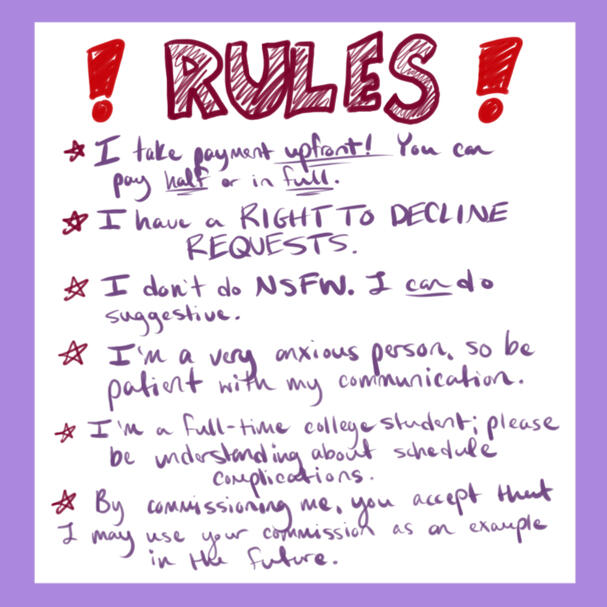 ! RULES !
☆ I take payment upfront! You can
pay half or in full.
☆ I have a RIGHT TO DECLINE
REQUESTS.
☆ I don't do NSFW. I can do
suggestive.
☆ I'm a very anxious person, so be
patient with my communication.
☆ I'm a full-time college student; please
be understanding about schedule
complications.
☆ By commissioning me, you accept that
I may use your commission as an example
in the future.